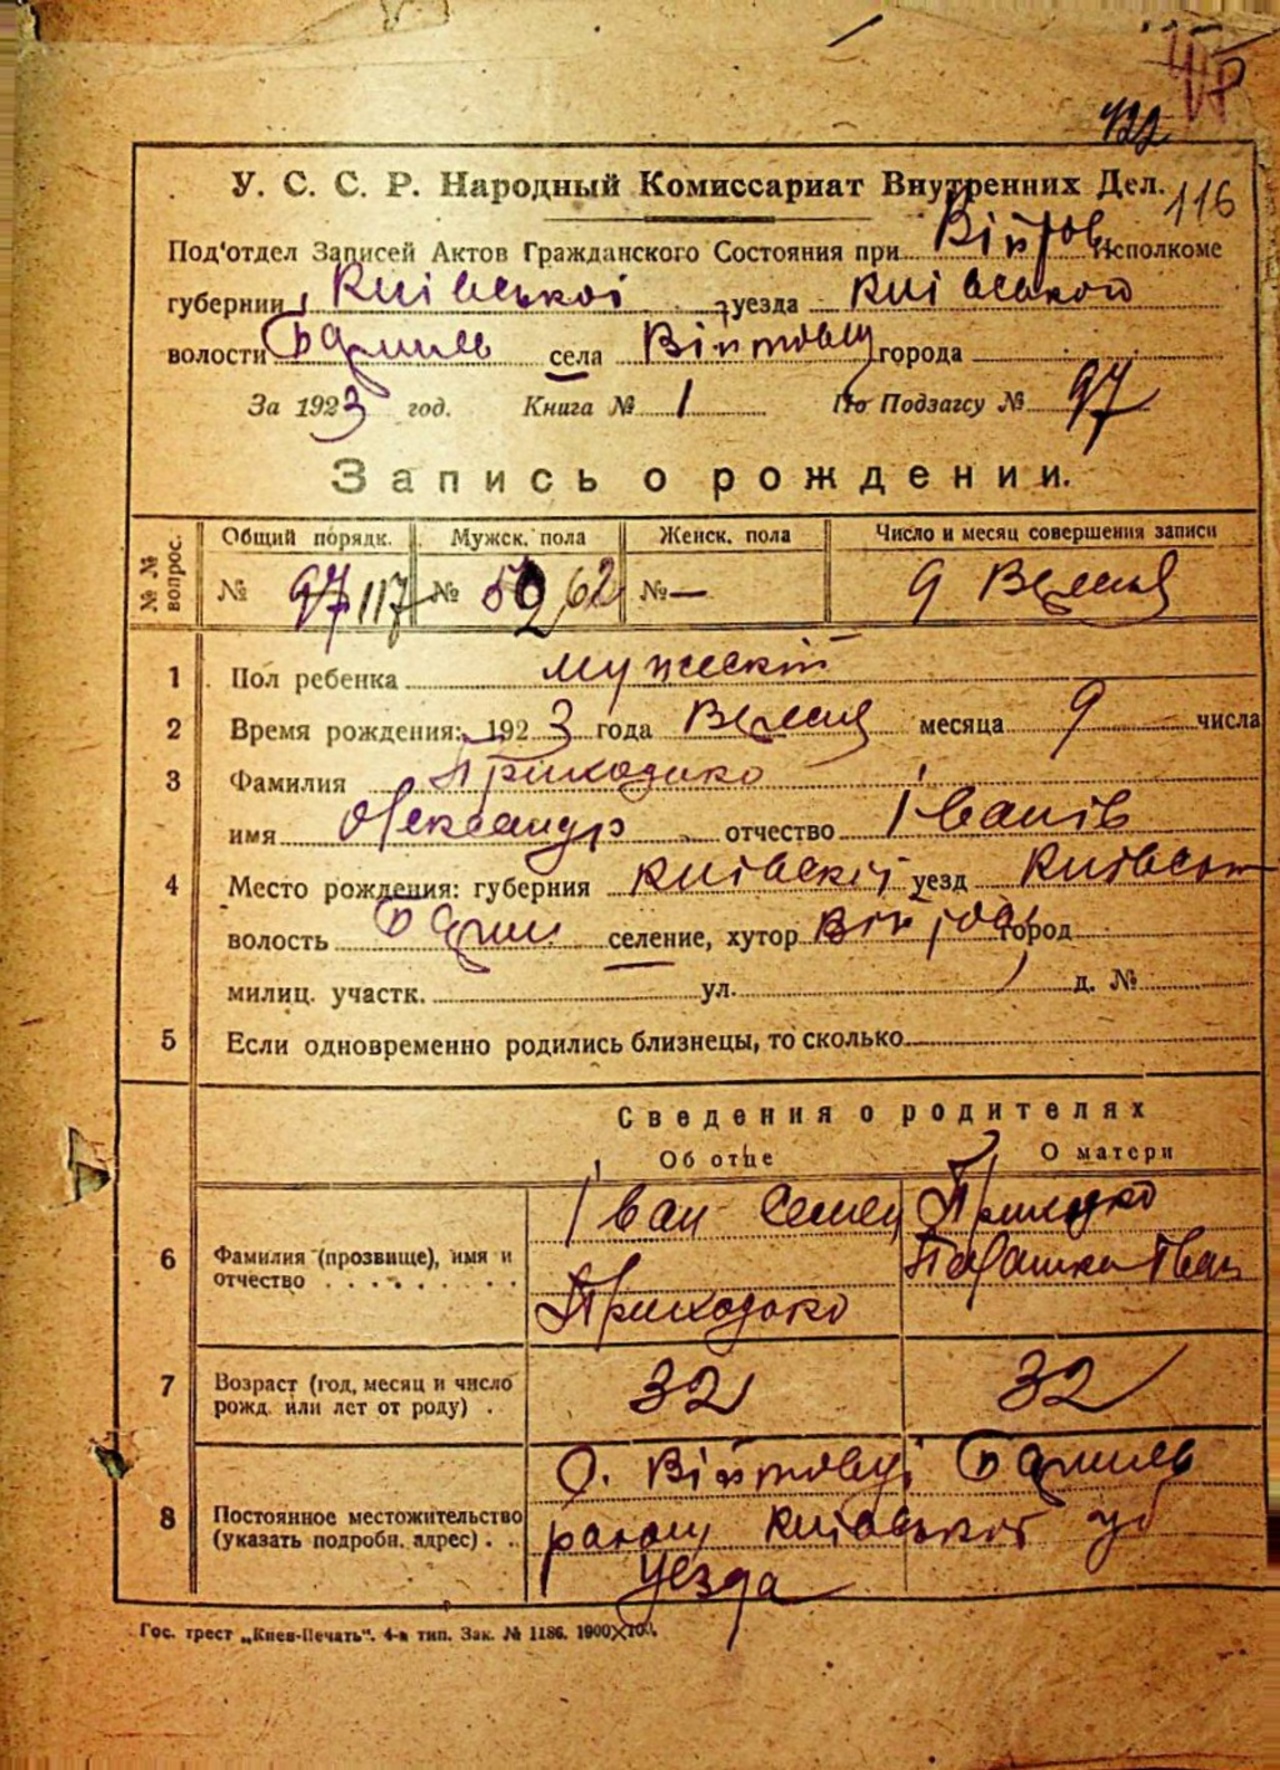 122
У. С. С. Р. Народный Комиссариат Внутренних Дел. 116
Под'отдел Записей Актов Гражданского Состояния при Исполкоме
губернии Київської уезда Київського
волости села города
За 1923 год. Книга № 1 По Подзагсу № 97
Запись о рождении.
№ № вопрос. Общий порядк. Мужск. пола Женск. пола Число и месяц совершения записи
№ 97 117 № 62 № — 9
1 Пол ребенка мужескій
2 Время рождения: 1923 года месяца 9 числа
3 Фамилия Приходько
имя Олександр отчество Іванів
4 Место рождения: губерния уезд
волость селение, хутор город
милиц. участк. ул. д. №
5 Если одновременно родились близнецы, то сколько
Сведения о родителях
Об отце О матери
6 Фамилия (прозвище), имя и отчество
Іван Семен Приходько
Приходько Парашка Іван
7 Возраст (год, месяц и число рожд. или лет от роду) . 32 32
8 Постоянное местожительство (указать подробн. адрес) . .
уезда
Гос. трест „Киев-Печать". 4-я тип. Зак. № 1186. 1900×100.